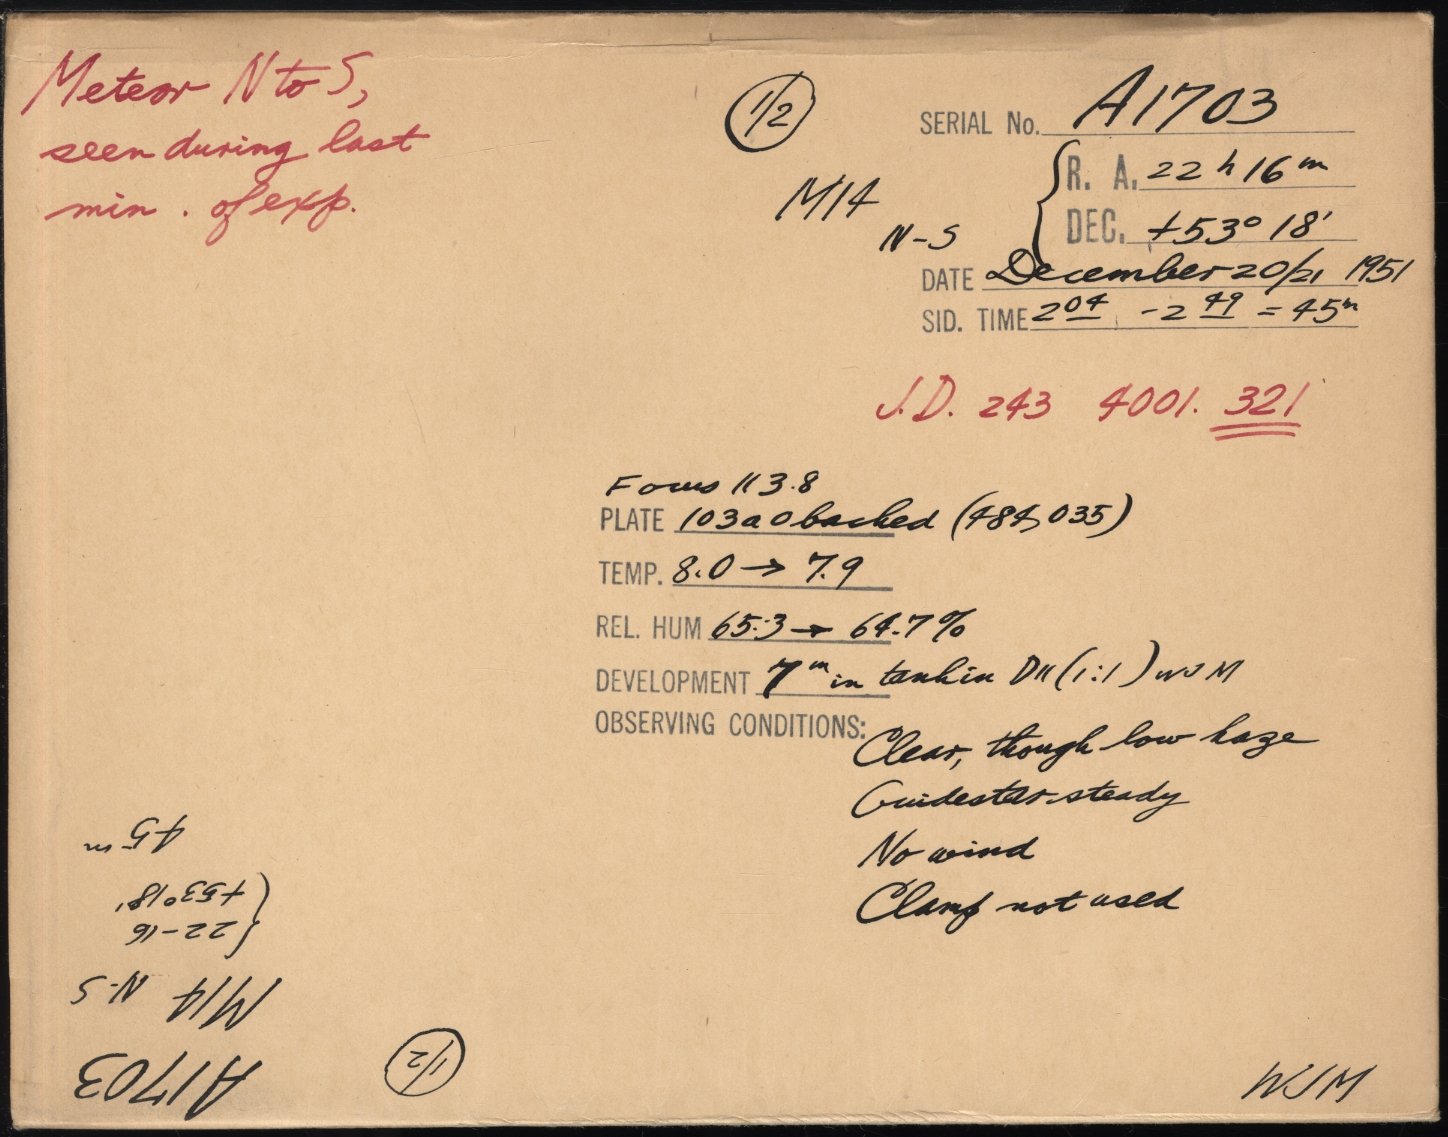 Meteor N to S,
seen during last
min. of exp.
1/2
SERIAL No. A1703
M14
N-S
R. A. 22 h 16 m
DEC. +53° 18'
DATE December 20/21 1951
SID. TIME 2 04 - 2 49 = 45m
J.D. 243 4001. 321
Focus 113.8
PLATE 103a0 backed (484,035)
TEMP. 8.0 → 7.9
REL. HUM 65.3 → 64.7%
DEVELOPMENT 7m in tank in D11 (1:1) WJM
OBSERVING CONDITIONS:
Clear, though low haze
Guidestar steady
No wind
Clamp not used
WJM
A1703
1/2
M14 N-S
22-16
+53°18'
45m